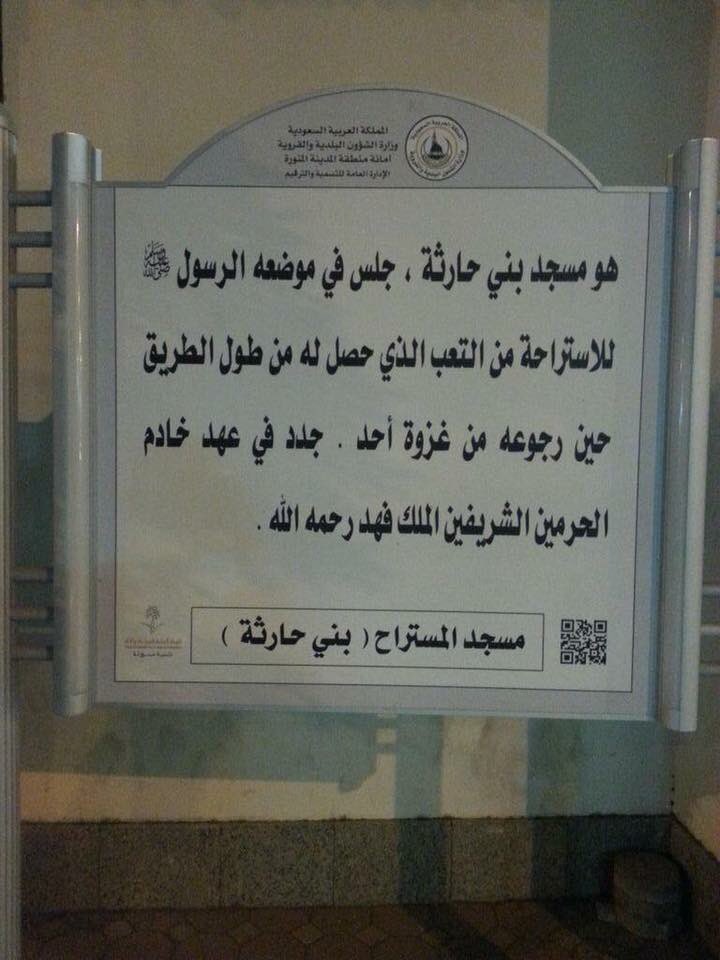 المملكة العربية السعودية
وزارة الشؤون البلدية والقروية
أمانة منطقة المدينة المنورة
الإدارة العامة للتسمية والترقيم
هو مسجد بني حارثة ، جلس في موضعه الرسول ﷺ
للاستراحة من التعب الذي حصل له من طول الطريق
حين رجوعه من غزوة أحد . جدد في عهد خادم
الحرمين الشريفين الملك فهد رحمه الله .
مسجد المستراح ( بني حارثة )